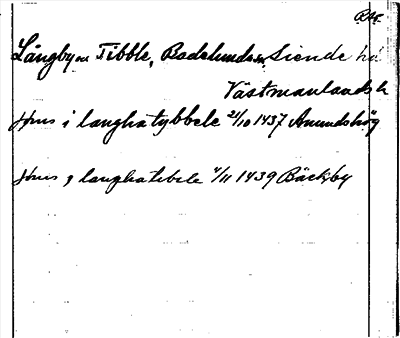 RAä
Långby = Tibble, Badelunda sn, Siende hd
Västmanlands l.
Jöns i langhatybbele 21/10 1437 Anundshög
Jöns i langhatibele 4/11 1439 Bäckby